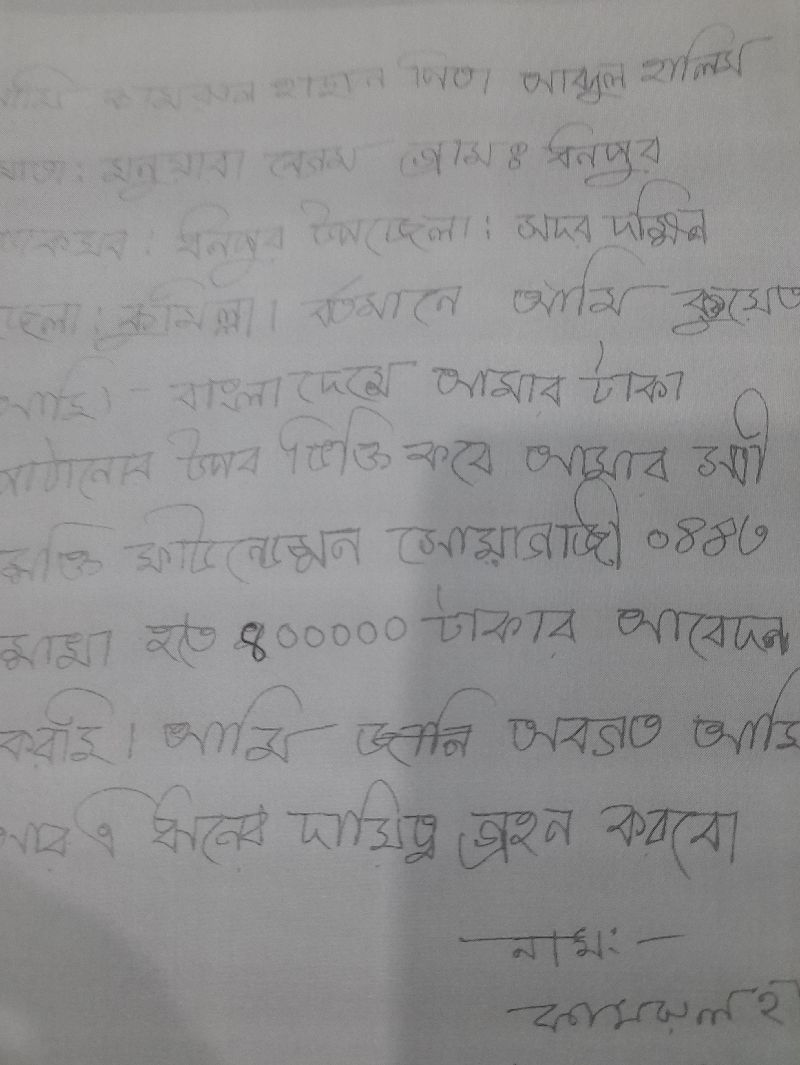 আমি কামরুল হাছান পিতা আব্দুল হালিম
মাতা: মনুয়ারা বেগম গ্রাম ঃ ধনিপুর
ডাকঘর : ধনিপুর উপজেলা : সদর দক্ষিন
জেলা : কুমিল্লা। বর্তমানে আমি কুয়েত
আছি। বাংলাদেশে আমার টাকা
পাঠানোর উপর ভিত্তি করে আমার স্ত্রী
সোয়াগাজী ০৪৪৬
শাখা হতে ৪০০০০০ টাকার আবেদন
করছি। আমি জানি অবগত আছি
আর এ ঋনের দায়িত্ব গ্রহন করবো।
নাম:-
কামরুল হ